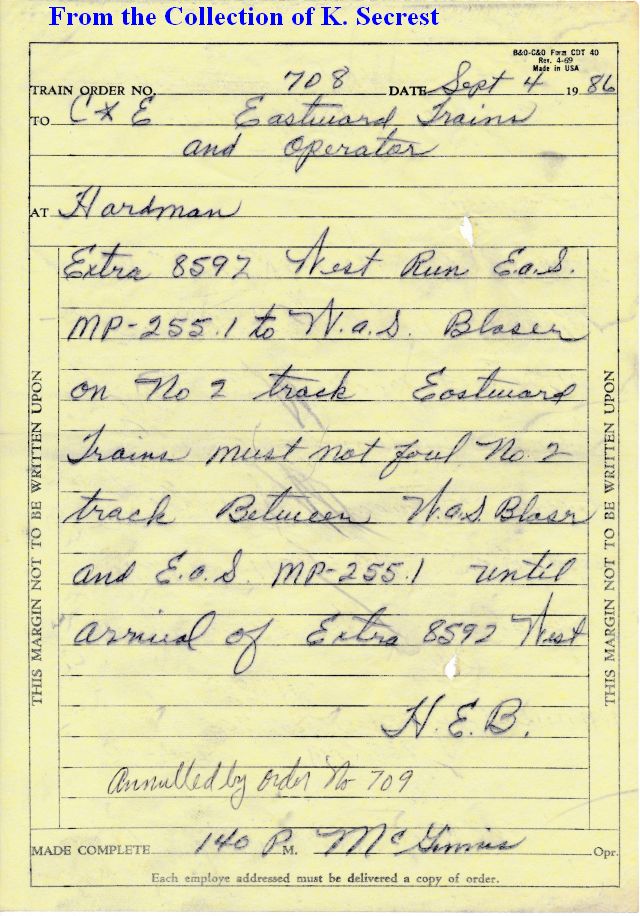 From the Collection of K. Secrest
B&O-C&O Form CDT 40
Rev. 4-69
Made in USA
TRAIN ORDER NO. 708 DATE Sept 4 1986
TO C & E Eastward Trains
and Operator
AT Hardman
Extra 8592 West Run E.a.S.
MP-255.1 to W.a.S. Blaser
on No 2 track Eastward
Trains must not foul No. 2
track Between W.a.S. Blaser
and E.a.S. MP-255.1 until
arrival of Extra 8592 West
H.E.B.
Annulled by order No 709
THIS MARGIN NOT TO BE WRITTEN UPON
THIS MARGIN NOT TO BE WRITTEN UPON
MADE COMPLETE 140 P M. McGinnis Opr.
Each employe addressed must be delivered a copy of order.